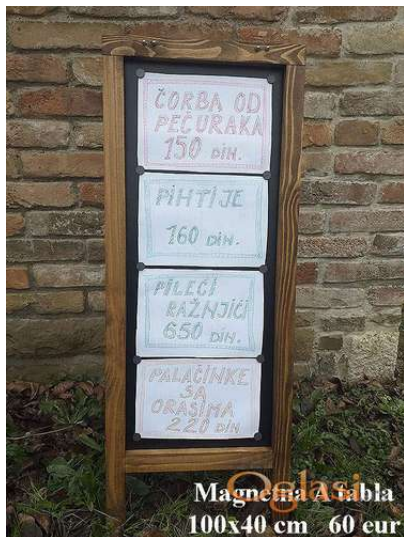 ČORBA OD
PEČURAKA
150 DIN.
PIHTIJE
160 DIN.
PILEĆI
RAŽNJIĆI
650 DIN.
PALAČINKE
SA
ORASIMA
220 DIN.
Oglasi
Magnetna A tabla
100x40 cm 60 eur